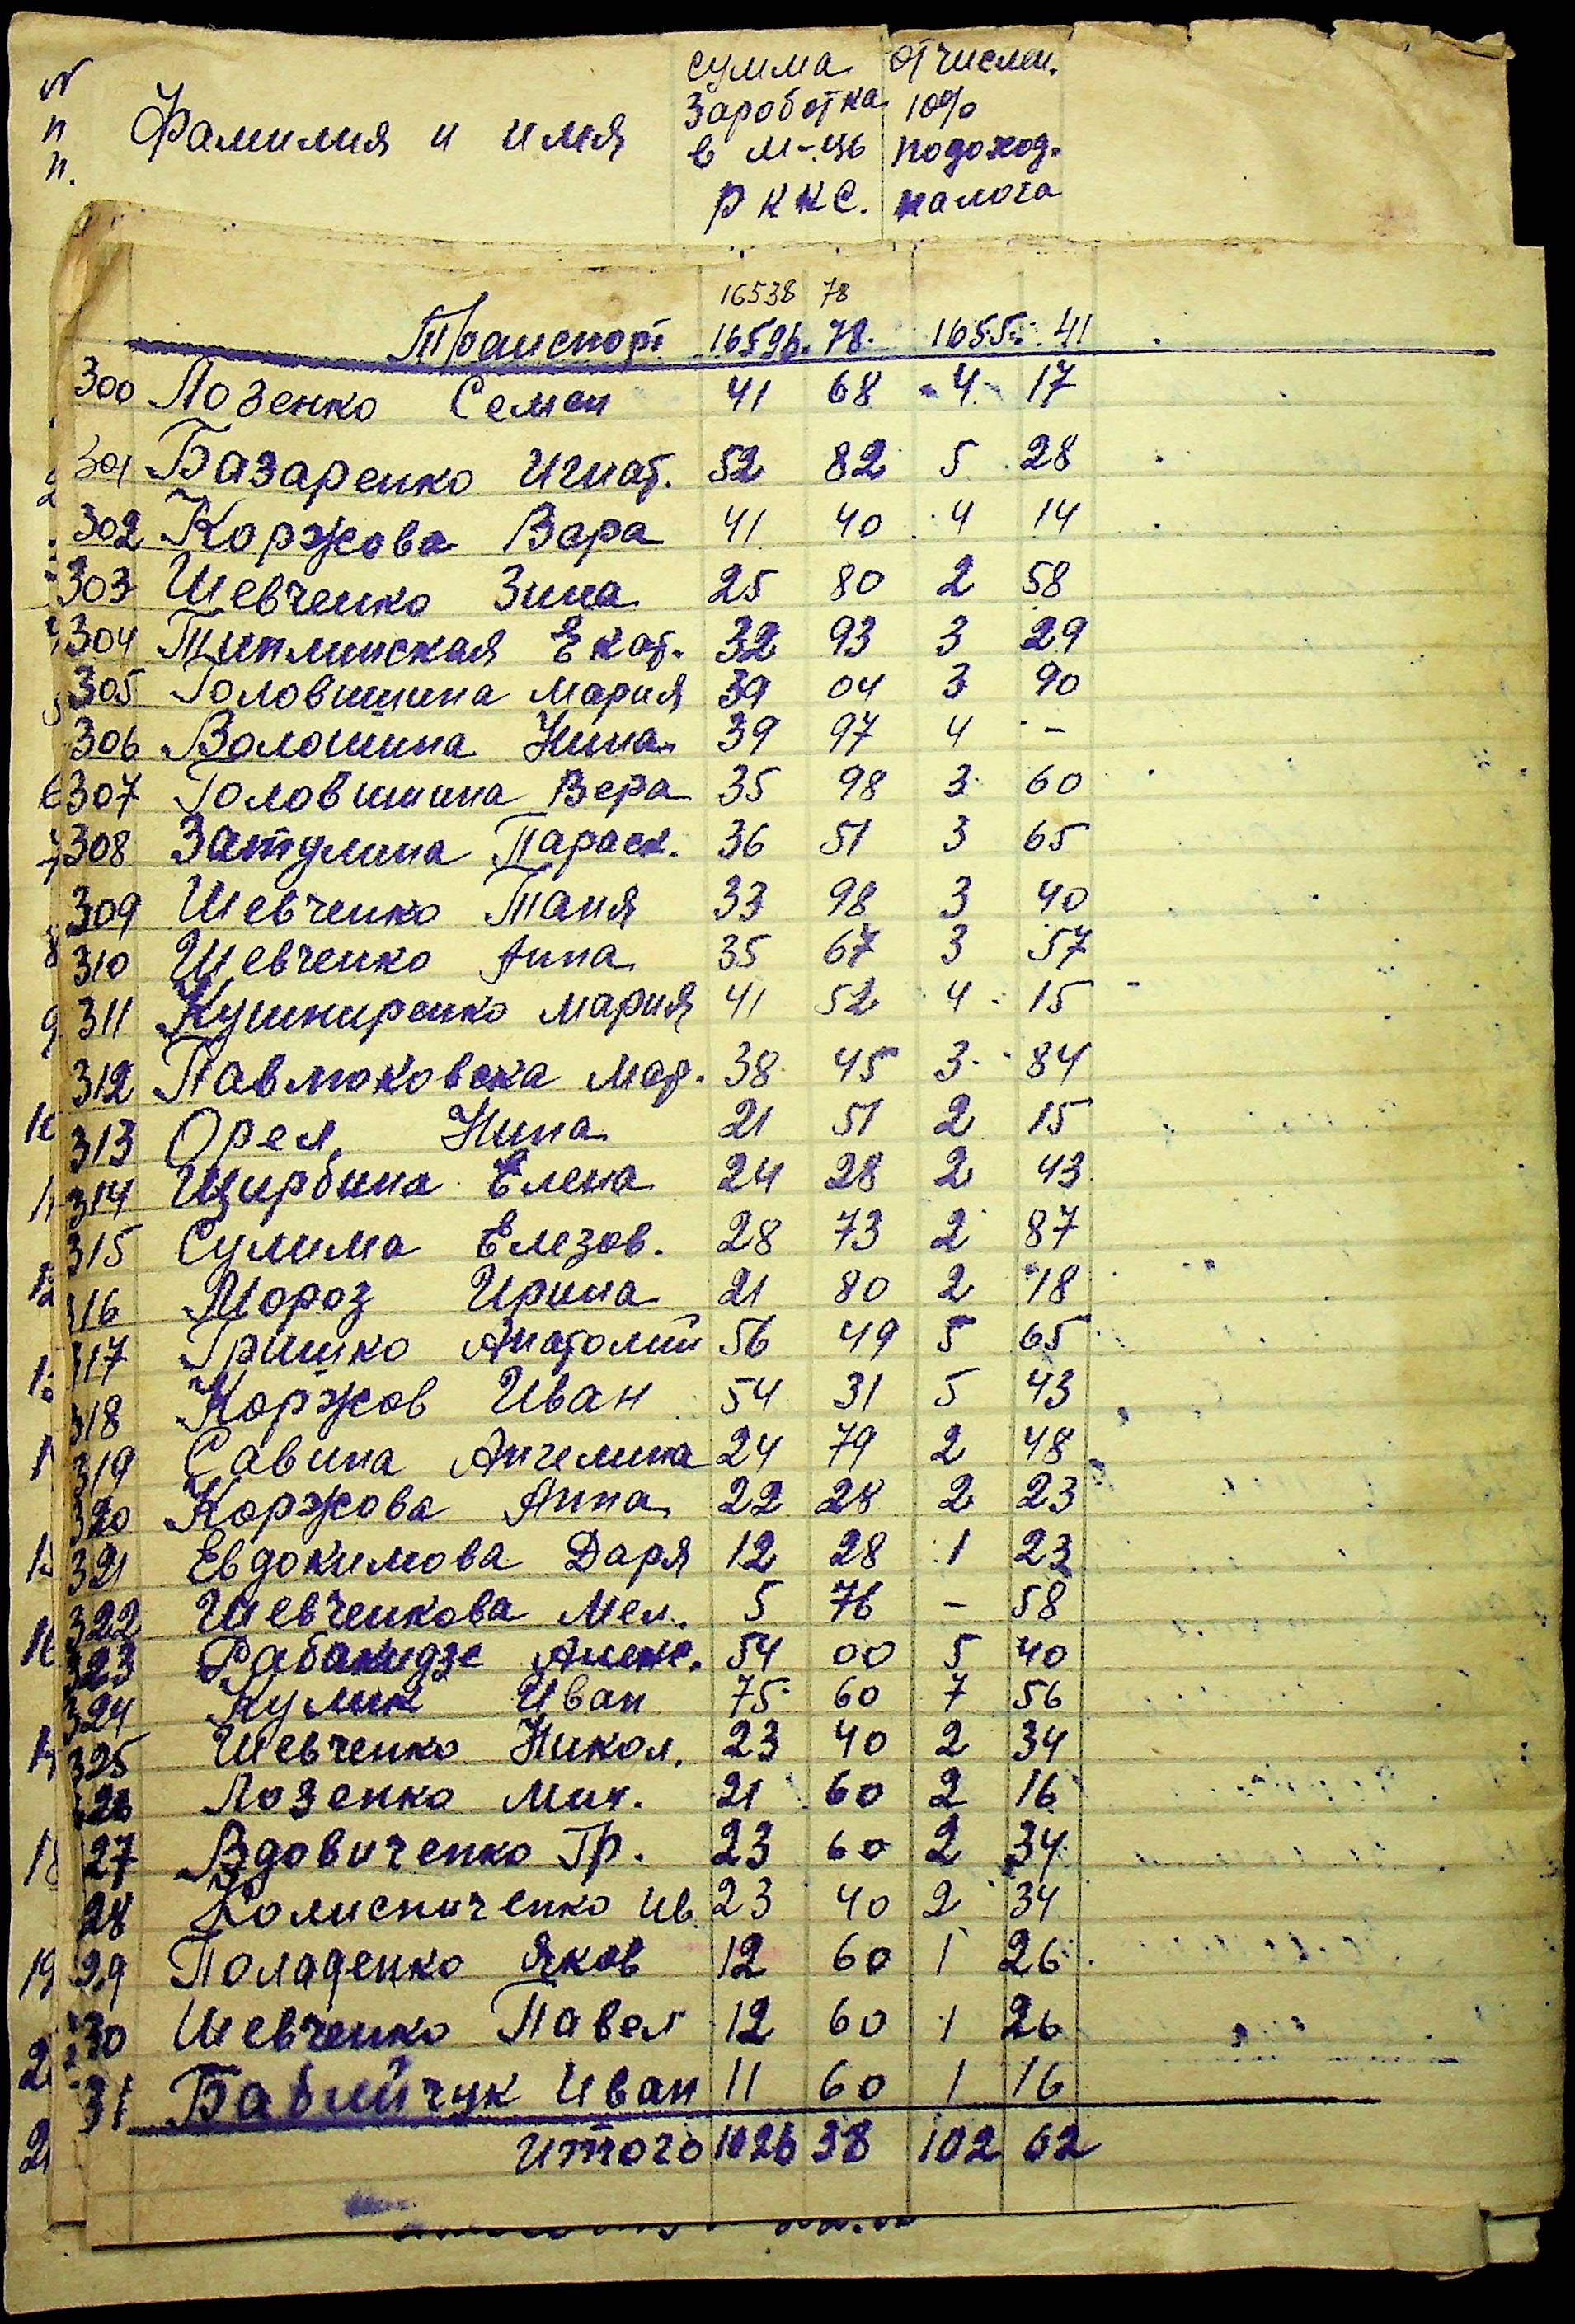 N
п
п.
Фамилия и имя
сумма
заработка
в м-ць
Р ККС.
отчислен.
10%
подоход.
налога
16538 78
Транспорт 16596. 78. 1655. 41
300 Лозенко Семен 41 68 4 17
301 Базаренко Игнат. 52 82 5 28
302 Коржова Вера 41 40 4 14
303 Шевченко Зина 25 80 2 58
304 Типлинская Екат. 32 93 3 29
305 Головшина Мария 39 04 3 90
306 Волошина Нина 39 97 4 -
307 Головшина Вера 35 98 3 60
308 Затулина Параск. 36 51 3 65
309 Шевченко Таня 33 98 3 40
310 Шевченко Анна 35 67 3 57
311 Кушниренко Мария 41 52 4 15
312 Павлюковска Мар. 38 45 3 84
313 Орел Нина 21 51 2 15
314 Щирбина Елена 24 28 2 43
315 Сулима Елезов. 28 73 2 87
316 Мороз Ирина 21 80 2 18
317 Гришко Анатолий 56 49 5 65
318 Коржов Иван 54 31 5 43
319 Савина Ангелина 24 79 2 48
320 Коржова Анна 22 28 2 23
321 Евдокимова Даря 12 28 1 23
322 Шевченкова Мел. 5 76 - 58
323 Рабакидзе Алекс. 54 00 5 40
324 Кулик Иван 75 60 7 56
325 Шевченко Никол. 23 40 2 34
326 Лозенко Мих. 21 60 2 16
27 Вдовиченко Гр. 23 60 2 34
28 Колисниченко Ив. 23 40 2 34
29 Поладенко Яков 12 60 1 26
30 Шевченко Павел 12 60 1 26
31 Бабийчук Иван 11 60 1 16
Итого 1026 38 102 62